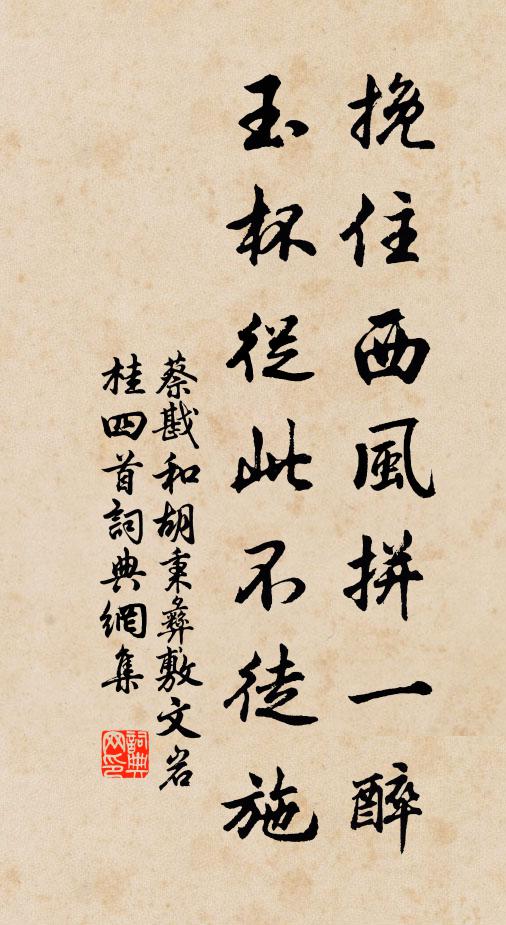 挽住西風拼一醉
玉杯從此不徒施
蔡戡和胡秉彝敷文岩
桂四首詞典網集
詞典
网印